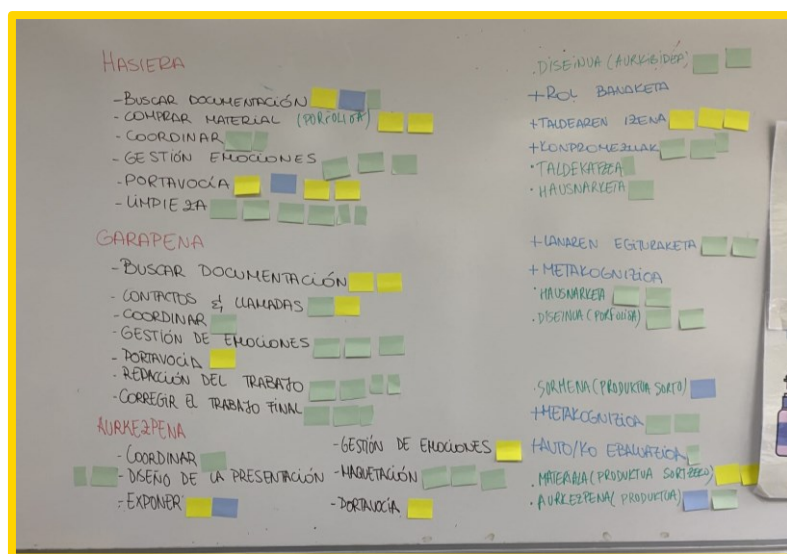 HASIERA
- BUSCAR DOCUMENTACIÓN
- COMPRAR MATERIAL (PORFOLIOA)
- COORDINAR
- GESTIÓN EMOCIONES
- PORTAVOCÍA
- LIMPIEZA
GARAPENA
- BUSCAR DOCUMENTACIÓN
- CONTACTOS & LLAMADAS
- COORDINAR
- GESTIÓN DE EMOCIONES
- PORTAVOCÍA
- REDACCIÓN DEL TRABAJO
- CORREGIR EL TRABAJO FINAL
AURKEZPENA
- COORDINAR
- DISEÑO DE LA PRESENTACIÓN
- EXPONER
- GESTIÓN DE EMOCIONES
- MAQUETACIÓN
- PORTAVOCÍA
· DISEINUA (AURKIBIDEA)
+ ROL BANAKETA
+ TALDEAREN IZENA
+ KONPROMEZUAK
· TALDEKATZEA
· HAUSNARKETA
+ LANAREN EGITURAKETA
+ METAKOGNIZIOA
· HAUSNARKETA
· DISEINUA (PORFOLIOA)
· SORMENA (PRODUKTUA SORTU)
+ METAKOGNIZIOA
+ AUTO/KO EBALUAZIOA
· MATERIALA (PRODUKTUA SORTZEKO)
· AURKEZPENA (PRODUKTUA)